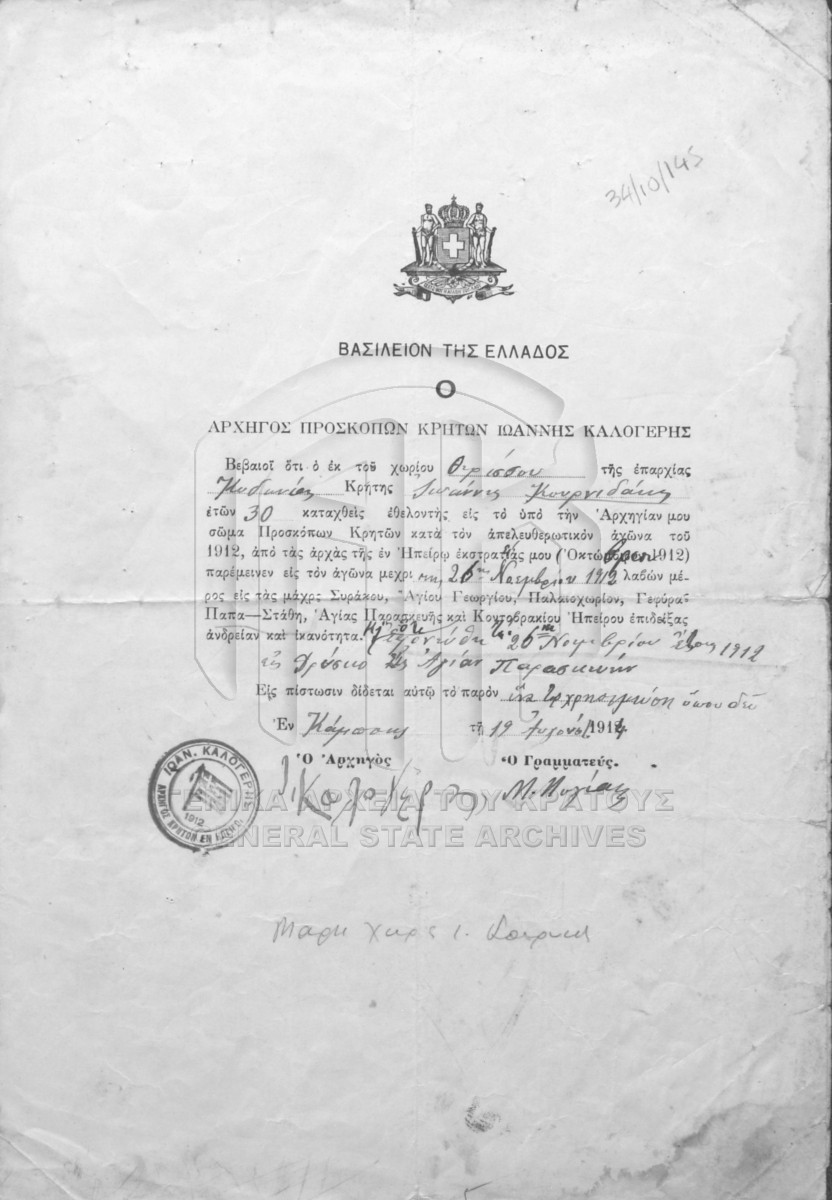 34/10/145
ΒΑΣΙΛΕΙΟΝ ΤΗΣ ΕΛΛΑΔΟΣ
Ο
ΑΡΧΗΓΟΣ ΠΡΟΣΚΟΠΩΝ ΚΡΗΤΩΝ ΙΩΑΝΝΗΣ ΚΑΛΟΓΕΡΗΣ
Βεβαιοῖ ὅτι ὁ ἐκ τοῦ χωρίου Θερίσσου τῆς ἐπαρχίας
Κυδωνίας Κρήτης Ἰωάννης Κουρνιδάκης
ἐτῶν 30 καταχθεὶς ἐθελοντὴς εἰς τὸ ὑπὸ τὴν Ἀρχηγίαν μου
σῶμα Προσκόπων Κρητῶν κατὰ τὸν ἀπελευθερωτικὸν ἀγῶνα τοῦ
1912, ἀπὸ τὰς ἀρχὰς τῆς ἐν Ἠπείρῳ ἐκστρατείας μου (Ὀκτώβριον 1912)
παρέμεινεν εἰς τὸν ἀγῶνα μεχρι 26ης Νοεμβρίου 1912 λαβὼν μέ-
ρος εἰς τὰς μάχας Συράκου, Ἁγίου Γεωργίου, Παλαιοχωρίου, Γεφύρας
Παπα—Στάθη, Ἁγίας Παρασκευῆς καὶ Κοντοβρακίου Ἠπείρου ἐπιδείξας
ἀνδρείαν καὶ ἱκανότητα. ὅτε 26ην Νοεμβρίου ἔτους 1912
εἰς Δρύσκο Ἁγίαν Παρασκευήν
Εἰς πίστωσιν δίδεται αὐτῷ τὸ παρὸν ἵνα χρησιμεύσῃ ὅπου δεῖ
Ἐν Κάμπους τῇ 19 1914
Ὁ Ἀρχηγὸς Ὁ Γραμματεύς.
Ι. Καλογέρης
ΙΩΑΝ. ΚΑΛΟΓΕΡΗΣ
1912
ΓΕΝΙΚΑ ΑΡΧΕΙΑ ΤΟΥ ΚΡΑΤΟΥΣ
GENERAL STATE ARCHIVES